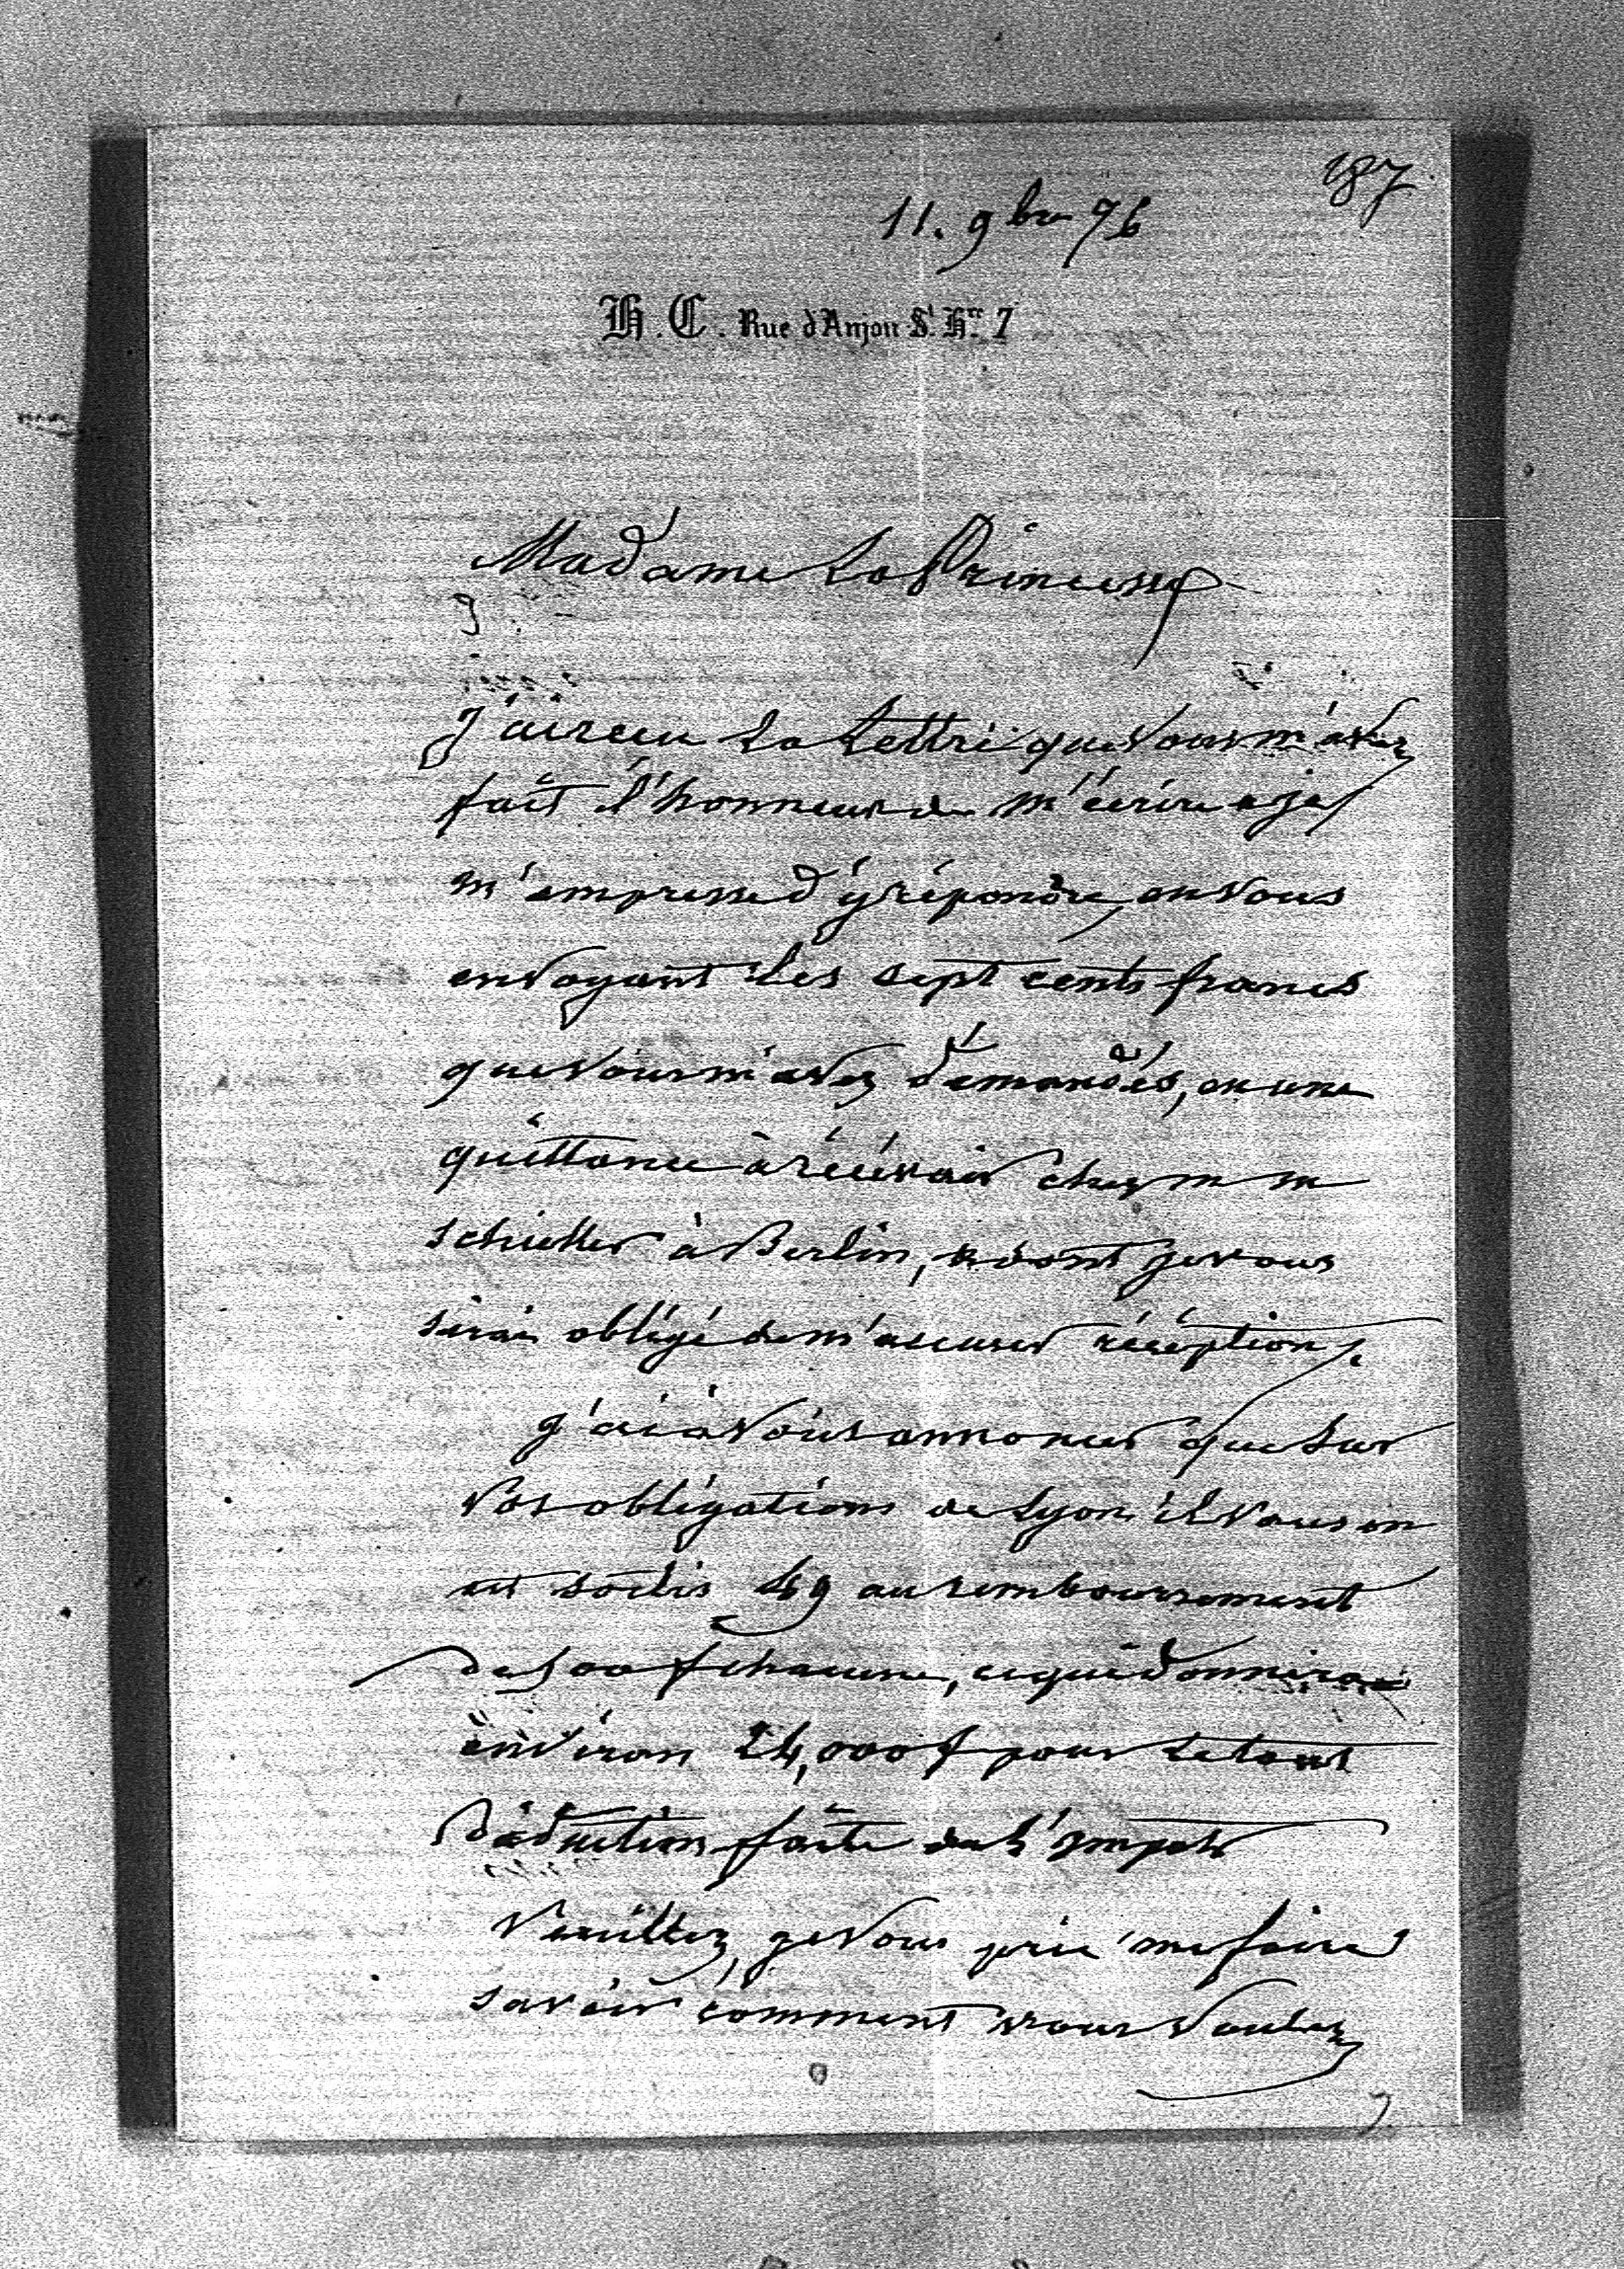 187
11. 9bre 76
H. C. Rue d'Anjou St. Hre. 7
Madame La Princesse
J'ai reçu La Lettre que vous m'avez
fait l'honneur de m'écrire & je
m'empresse d'y répondre, en vous
envoyant les sept cents francs
que vous m'avez demandés, en une
quittance à récévoir chez m m
schickler à Berlin, & dont je vous
serai obligé de m'accuser récéption,
j'ai à vous annoncer que sur
vos obligations de Lyon il vous en
est sortis 49 au remboursement
de 500 f chacune, ce qui donnera
environ 24,000 f pour le tout
déduction faite de l'impot
Veuillez, je vous prie me faire
savoir comment vous voulez